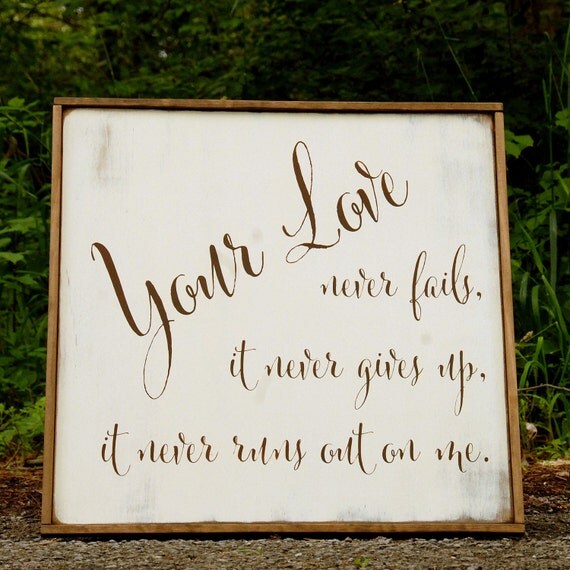 Your Love
never fails,
it never gives up,
it never runs out on me.